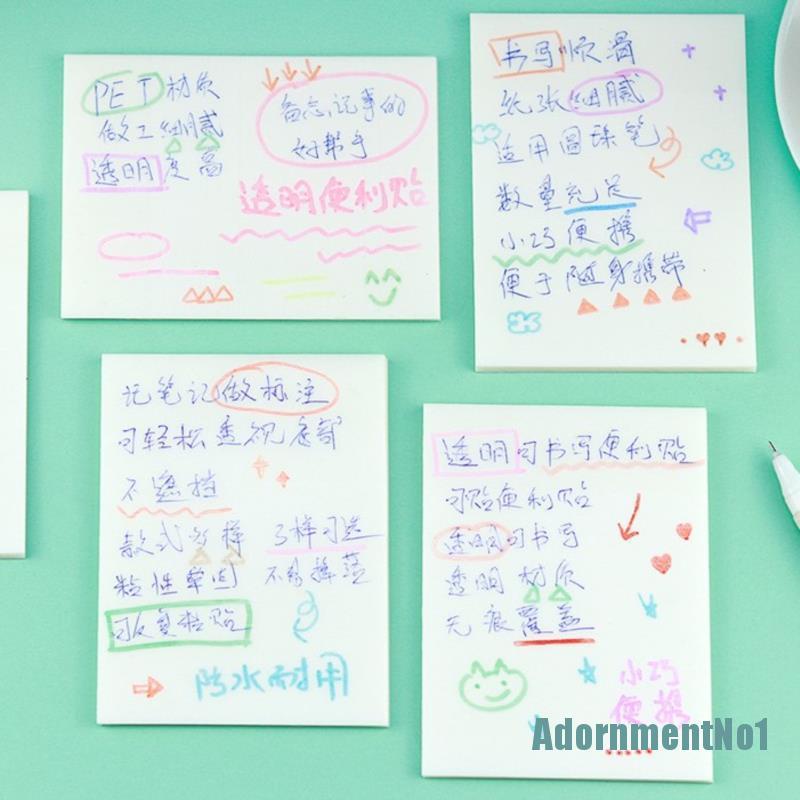 PET材质
做工细腻
透明度高
备忘、记事的
好帮手
透明便利贴
书写顺滑
纸张细腻
适用圆珠笔
数量充足
小巧便携
便于随身携带
记笔记做标注
可轻松透视底部
不遮挡
款式多样
多样可选
粘性牢固
不易掉落
可反复粘贴
防水耐用
透明可书写便利贴
可贴便利贴
透明可书写
透明材质
无痕覆盖
小巧
便携
AdornmentNo1